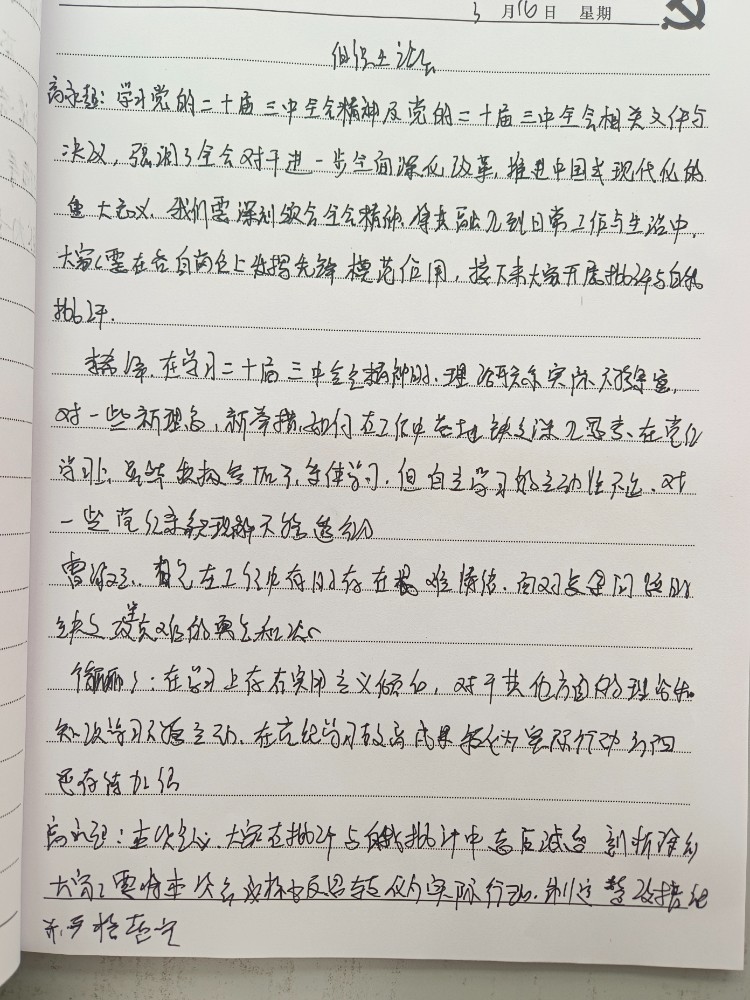 3 月 16 日 星期
组织生活会
高永超：学习党的二十届三中全会精神及党的二十届三中全会相关文件与
决议，强调了全会对于进一步全面深化改革，推进中国式现代化的
重大意义，我们要深刻领会全会精神，将其融入到日常工作与生活中，
大家要在各自岗位上发挥先锋模范作用，接下来大家开展批评与自我
批评.
在学习二十届三中全会精神时，理论联系实际不够紧密，
对一些新理念，新举措如何在工作中落地缺乏深入思考，在党纪
学习上，虽然积极参加了集体学习，但自主学习的主动性不足，对
一些党纪条款理解不够透彻
曹 首先在工作中有时存在畏难情绪，面对 问题时
缺乏攻坚克难的勇气和决心
徐丽：在学习上存在实用主义倾向，对于其他方面的理论知
识学习不够主动，在党纪学习教育成果转化为实际行动方面
还存待加强
：本次会议，大家在批评与自我批评中 剖析
大家要将本次会 转化为实际行动，制定整改措施